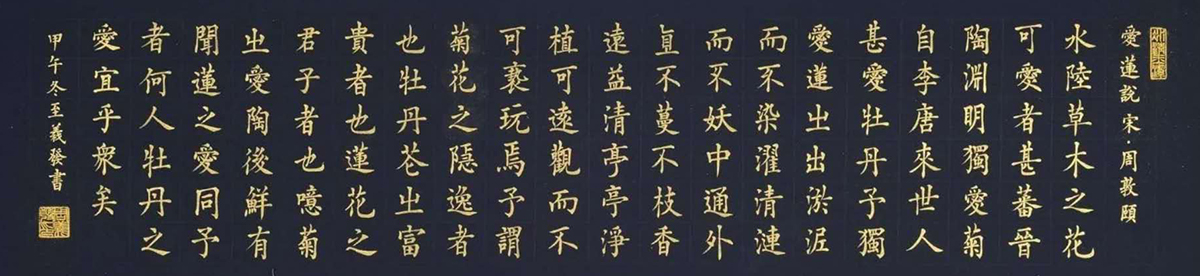 愛蓮說宋·周敦頤
水陸草木之花
可愛者甚蕃晉
陶淵明獨愛菊
自李唐來世人
甚愛牡丹予獨
愛蓮㞢出淤泥
而不染濯清漣
而不妖中通外
直不蔓不枝香
遠益清亭亭淨
植可遠觀而不
可褻玩焉予謂
菊花之隱逸者
也牡丹花㞢富
貴者也蓮花之
君子者也噫菊
㞢愛陶後鮮有
聞蓮之愛同予
者何人牡丹之
愛宜乎眾矣
甲午冬至義發書